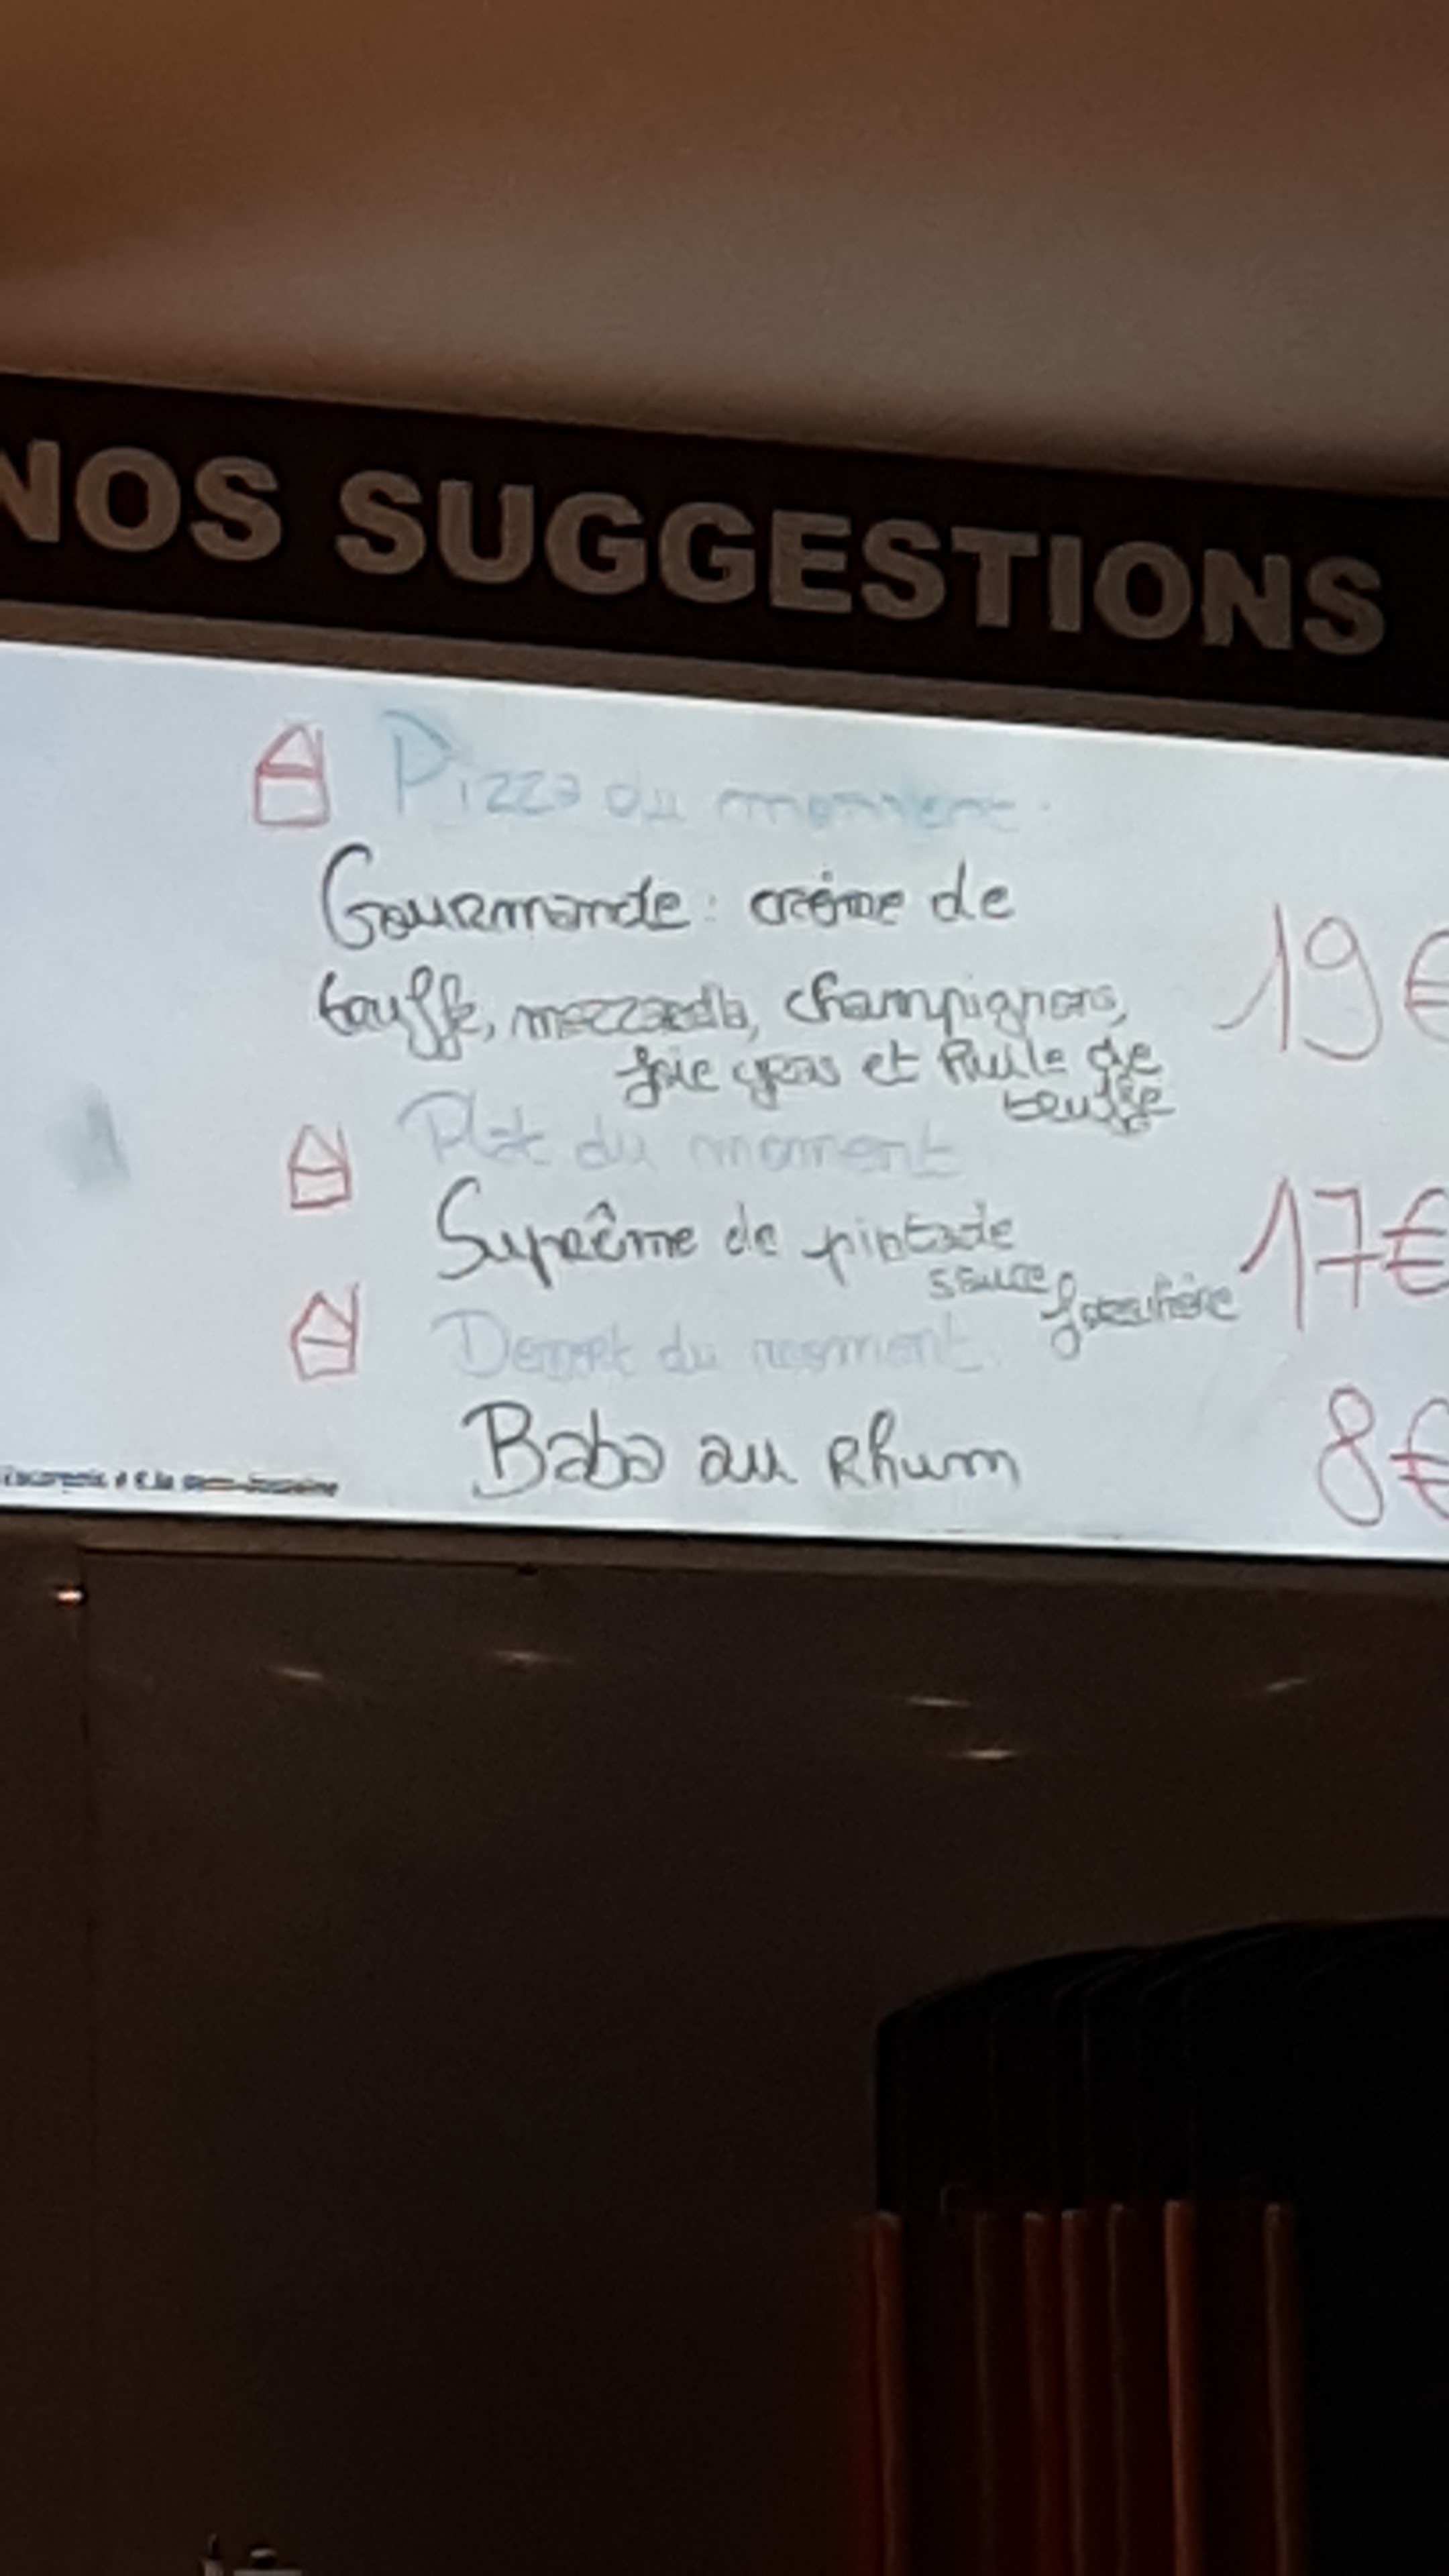 NOS SUGGESTIONS
Pizza du moment.
Gourmande : crème de
truffe, mozzarella, champignons,
foie gras et huile de
truffe
19€
Plat du moment
Suprême de pintade
sauce forestière
17€
Dessert du moment.
Baba au Rhum
8€